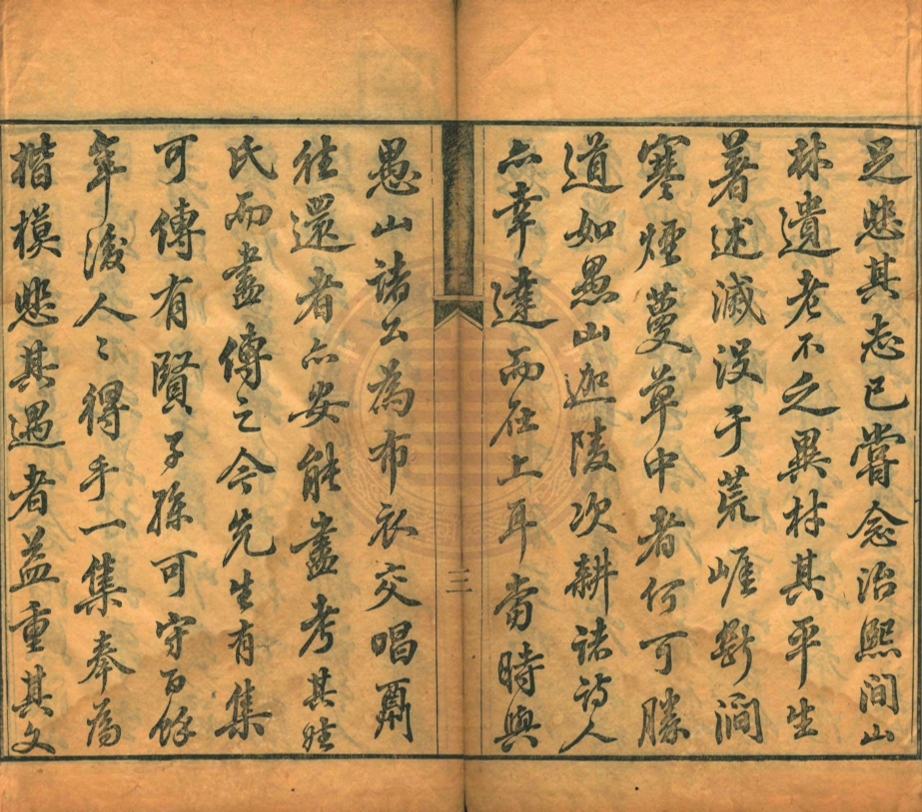 足悲其志已嘗念治熙间山
林遺老不乏異材其平生
著述滅没于荒崕斷澗
寒煙蔓草中者何可勝
道如愚山迦陵次耕諸詩人
亦幸達而在上耳當時與
三
愚山諸公為布衣交唱
往還者亦安能盡考其姓
氏而盡傳之今先生有集
可傳有賢子孫可守百餘
年後人〻得手一集奉為
楷模悲其遇者益重其文